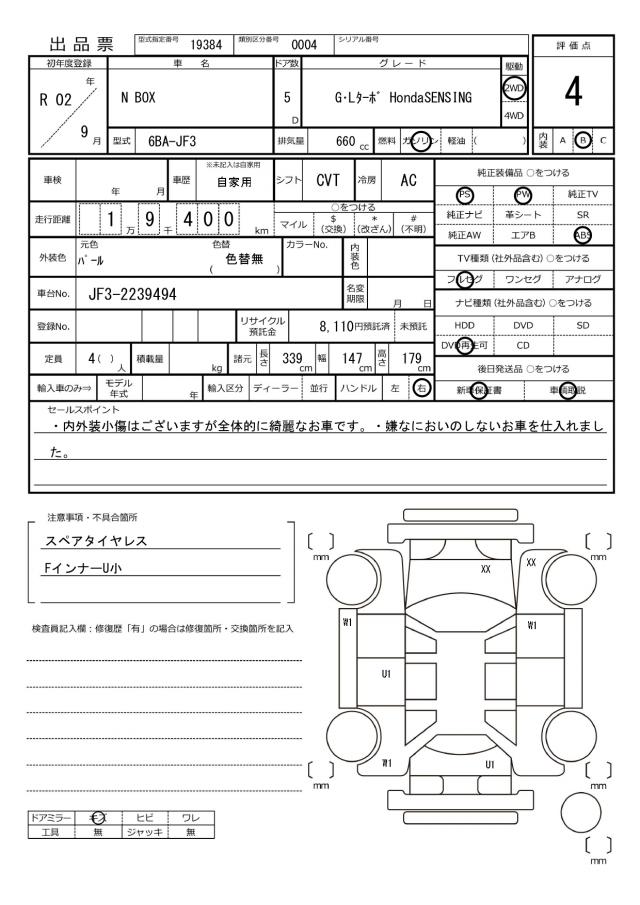 出品票 型式指定番号 19384 類別区分番号 0004 シリアル番号
評価点
4
初年度登録 車名 ドア数 グレード 駆動
R 02 年 9 月
N BOX
5 D
G・Lターボ HondaSENSING
2WD
4WD
型式 6BA-JF3 排気量 660 cc 燃料 ガソリン 軽油 ( ) 内装 A B C
車検 年 月 車歴 ※未記入は自家用 自家用 シフト CVT 冷房 AC
純正装備品 ○をつける
PS PW 純正TV
純正ナビ 革シート SR
純正AW エアB ABS
走行距離 1 万 9 千 4 0 0 km
○をつける
マイル $ (交換) * (改ざん) # (不明)
外装色 元色 パール 色替 ( 色替無 ) カラーNo. 内装色
TV種類 (社外品含む) ○をつける
フルセグ ワンセグ アナログ
車台No. JF3-2239494 名変期限 月 日
ナビ種類 (社外品含む) ○をつける
HDD DVD SD
DVD再生可 CD
登録No. リサイクル預託金 8,110円預託済 未預託
定員 4 ( ) 人 積載量 kg 諸元 長さ 339 cm 幅 147 cm 高さ 179 cm
後日発送品 ○をつける
新車保証書 車輌取説
輸入車のみ⇒ モデル年式 年 輸入区分 ディーラー 並行 ハンドル 左 右
セールスポイント
・内外装小傷はございますが全体的に綺麗なお車です。・嫌なにおいのしないお車を仕入れまし
た。
注意事項・不具合箇所
スペアタイヤレス
FインナーU小
検査員記入欄：修復歴「有」の場合は修復箇所・交換箇所を記入
mm mm
XX XX
W1 W1
U1
W1 U1
mm mm
mm
ドアミラー キズ ヒビ ワレ
工具 無 ジャッキ 無